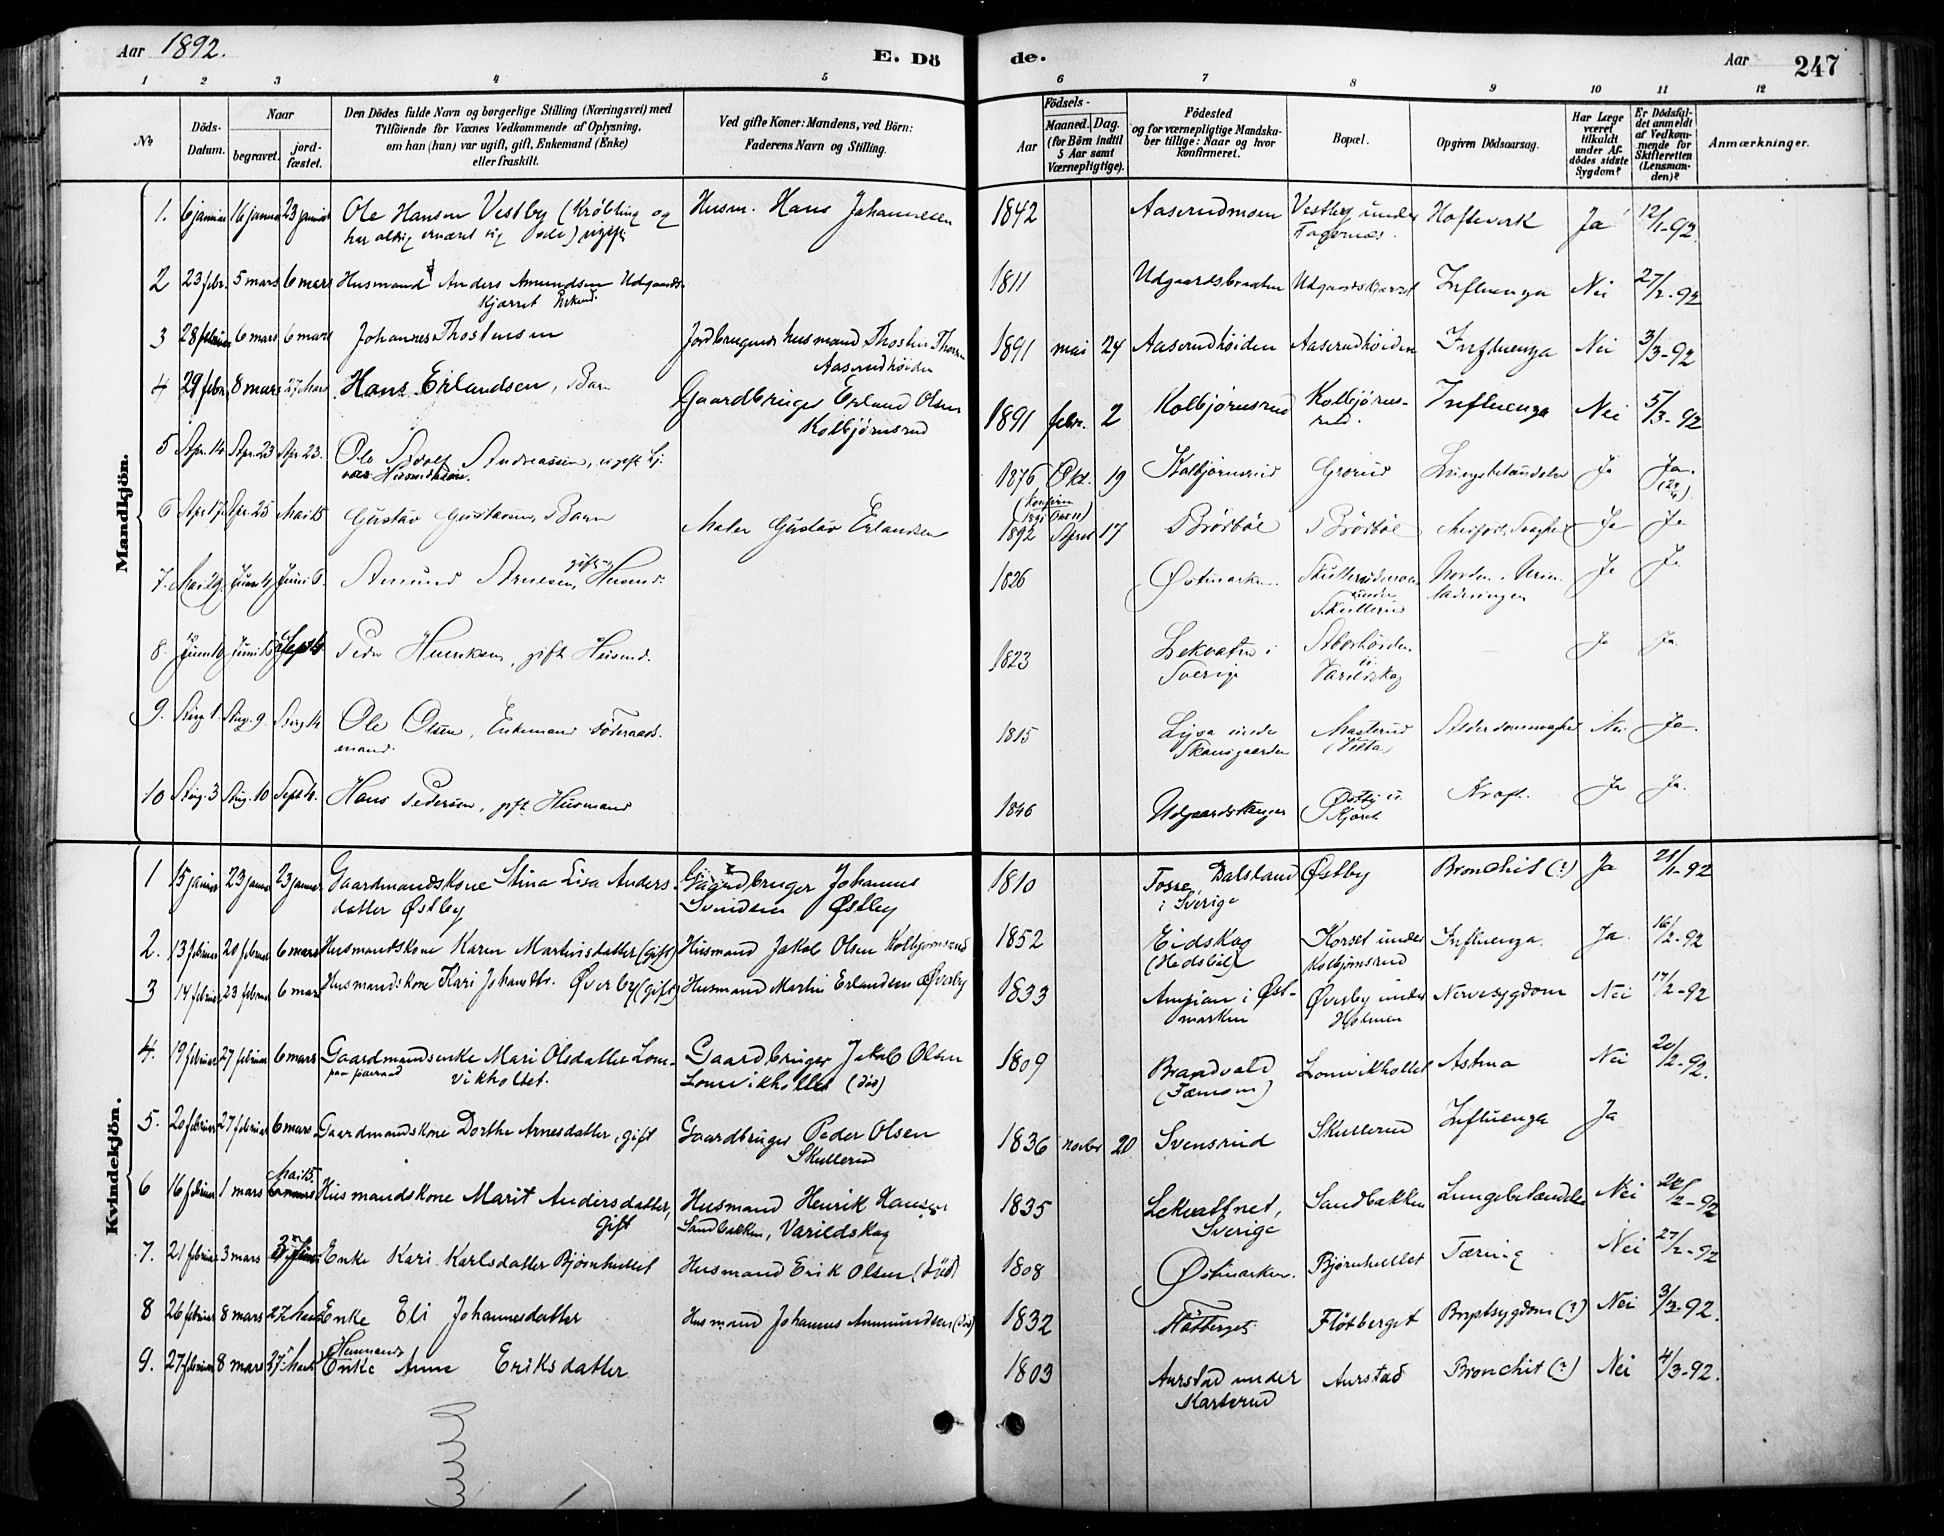 Aar 1892.
E. Dö
de.
Aar
247
1 2 3 4 5 6 7 8 9 10 11 12
No
Döds-
Datum.
Naar
begravet.
jord-
fæstet.
Den Dödes fulde Navn og borgerlige Stilling (Næringsvei) med
Tilföiende for Voxnes Vedkommende af Oplysning,
om han (hun) var ugift, gift, Enkemand (Enke)
eller fraskilt.
Ved gifte Koner: Mandens, ved Börn:
Faderens Navn og Stilling.
Födsels-
Aar
Maaned.
Dag.
(for Börn indtil
5 Aar samt
Værnepligtige).
Födested
og for værnepligtige Mandska-
ber tillige: Naar og hvor
konfirmeret.
Bopæl.
Opgiven Dödsaarsag.
Har Læge
været
tilkaldt
under Af-
dödes sidste
Sygdom?
Er Dödsfal-
det anmeldt
af Vedkom-
mende for
Skifteretten
(Lensman-
den)?
Anmærkninger.
Mandkjön.
1. 6 januar 16 januar 23 januar Ole Hansen Vestby (Krøbling og Husm. Hans Johannesen 1842 Aaserudmoen Vestby under Hofteverk Ja 12/1-92.
har aldrig ernæret sig selv) ugift Fagernæs.
2 23 febr. 5 mars 6 mars Husmand Anders Amundsen Udgaards- 1811 Udgaardsbraaten Udgaardskjærret Influenza Nei 27/2-92
kjærret Enkem.
3 28 februar 6 mars 6 mars Johannes Thostensen Jordbrugende husmand Thosten 1891 mai 24 Aaserudhöiden Aaserudhöiden Influenza Nei 3/3-92
Aaserudhöiden
4 29 febr. 8 mars 27 Mars Hans Erlandsen, Barn Gaardbruger Erland Olsen 1891 febr. 2 Kolbjörnsrud Kolbjörns- Influenza Nei 5/3-92
Kolbjörnsrud rud.
5 Apr. 14 Apr. 23 Apr. 23. Ole Adolf Andreassen, ugift 1876 Okt. 19 Kolbjørnsrud Grorud Lungebetændelse Ja Ja.
6 Apr. 17 Apr. 25 Mai 15 Gustav Gustavsen, Barn Maler Gustav Erlandsen 1892 April 17 Brøtbøl Brøtbøl Ja Ja
7. Mai 29. Juni 4 Juni 6. Amund Arnesen, gift Husmd. 1826 Østmarken. Ja Ja
under
Skullerud
8. Juni Juni 13 Sept 4 Peder Henriksen, gift Husmd. 1823 Lekvatnet i Ja Ja
Sverige Varildskog
9. Aug. 1. Aug. 9. Aug. 14 Ole Olsen, Enkemand Føderaads- 1815 under Masterud Alderdomssvaghed Nei Ja.
mand. Skansgaarden
10 Aug. 3 Aug. 10 Sept 4. Hans Pedersen, gift Husmand 1846 Østby u. Kræft. Ja Ja.
Kjäret
Kvindekjön.
1 15 januar 23 januar 23 januar Gaardmandskone Stina Lisa Anders- Gaardbruger Johannes 1810 Fosse, Dalsland Østby Bronchit (?) Ja 21/1-92
datter Østby Svendsen Østby i Sverige
2. 13 februar 20 februar 6 mars Husmandskone Karen Martinsdatter (gift) Husmand Jakob Olsen Kolbjørnsrud 1852 Eidskog Korset under Influenza. Ja 16/2-92
Kolbjørnsrud
3 14 februar 23 februar 6 mars Husmandskone Kari Johansdtr. Øverby (gift) Husmand Martin Erlandsen Øverby 1833 i Øst- Øverby under Nervesygdom Nei 17/2-92
marken Holmen
4. 19 februar 27 februar 6 mars Gaardmandsenke Mari Olsdatter Lom- Gaardbruger Jakob Olsen 1809 Brandvold Lomvikholtet Astma Nei 20/2-92.
paa föderaad vikholtet. Lomvikholtet (död)
5. 20 februar 27 februar 6 mars Gaardmandskone Dorthe Arnesdatter, gift Gaardbruger Peder Olsen 1836 novbr 20 Svensrud Skullerud Influenza Ja
Skullerud
6 16 februar 1 mars Mai 15. Husmandskone Marit Andersdatter, Husmand Henrik Hansen 1835 Lekvattnet, Sandbakken Lungebetændelse Nei
gift Sandbakken, Varildskog Sverige
7. 21 februar 3 mars Enke Kari Karlsdatter Bjørnhullet Husmand Erik Olsen (död) 1808 Østmarken. Bjørnhullet Tæring Nei 27/2-92
8 26 februar 8 mars 27 Mars Enke Eli Johannesdatter Husmand Johannes Ammundsen (död) 1832 Flötberget Flötberget Brystsygdom (?) Nei 3/3-92.
9. 27 februar 8 mars 27 Mars Enke Anne Eriksdatter 1803 Aurstad under Aurstad Bronchit (?) Nei 4/3-92.
Masterud